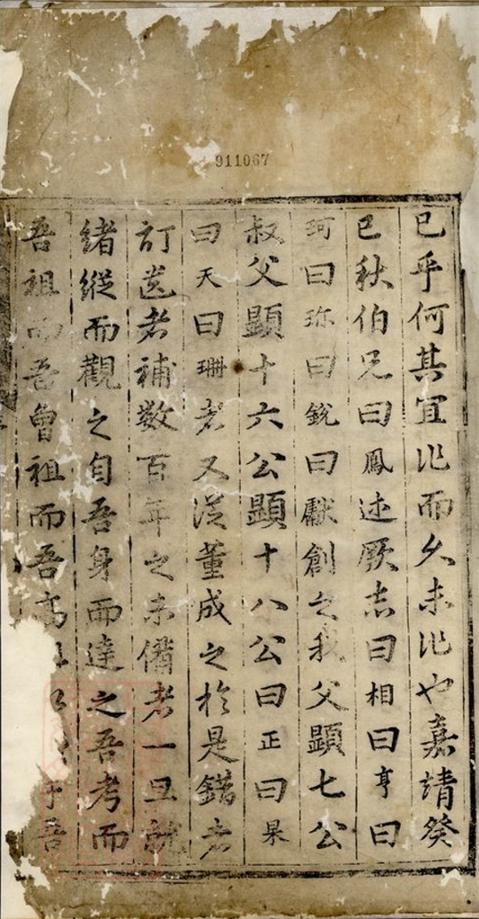 911067
已乎何其宜作而久未作也嘉靖癸
巳秋伯兄曰鳳述厥志曰相曰亨曰
珂曰珎曰銳曰獻創之我父顯七公
叔父顯十六公顯十八公曰正曰杲
曰天曰珊者又從董成之於是錯者
訂送者補数百年之未備者一旦就
緒縱而觀之自吾身而達之吾考而
吾祖而吾曾祖而吾高
吾